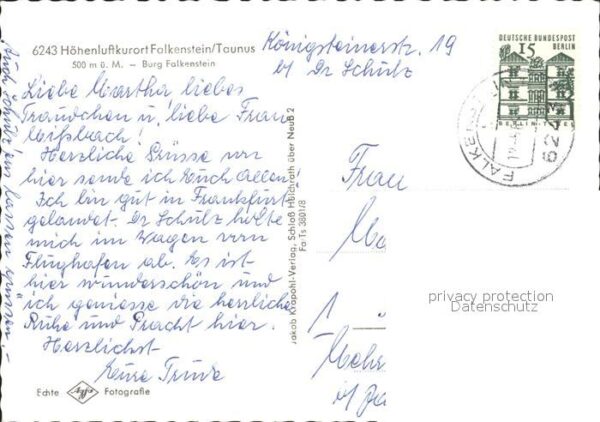 6243 Höhenluftkurort Falkenstein/Taunus
500 m ü. M. – Burg Falkenstein
Königsteinerstr. 19
b/ Dr Schulz
Liebe Martha liebes
Trauchen u. liebe Frau
Herzliche Grüsse von
hier sende ich Euch allen!
Ich bin gut in Frankfurt
gelandet. Dr Schulz holte
mich im Wagen vom
Flughafen ab. Es ist
hier wunderschön und
ich geniesse die herrliche
Ruhe und Pracht hier.
Herzlichst
Eure Trude
Echte Agfa Fotografie
Jakob Krapohl-Verlag, Schloß Hülchrath über Neuß 2
Fa Ts 3801/8
DEUTSCHE BUNDESPOST
BERLIN
15
BERLIN-TEGEL
6243 FALKEN
Frau
1
privacy protection
Datenschutz